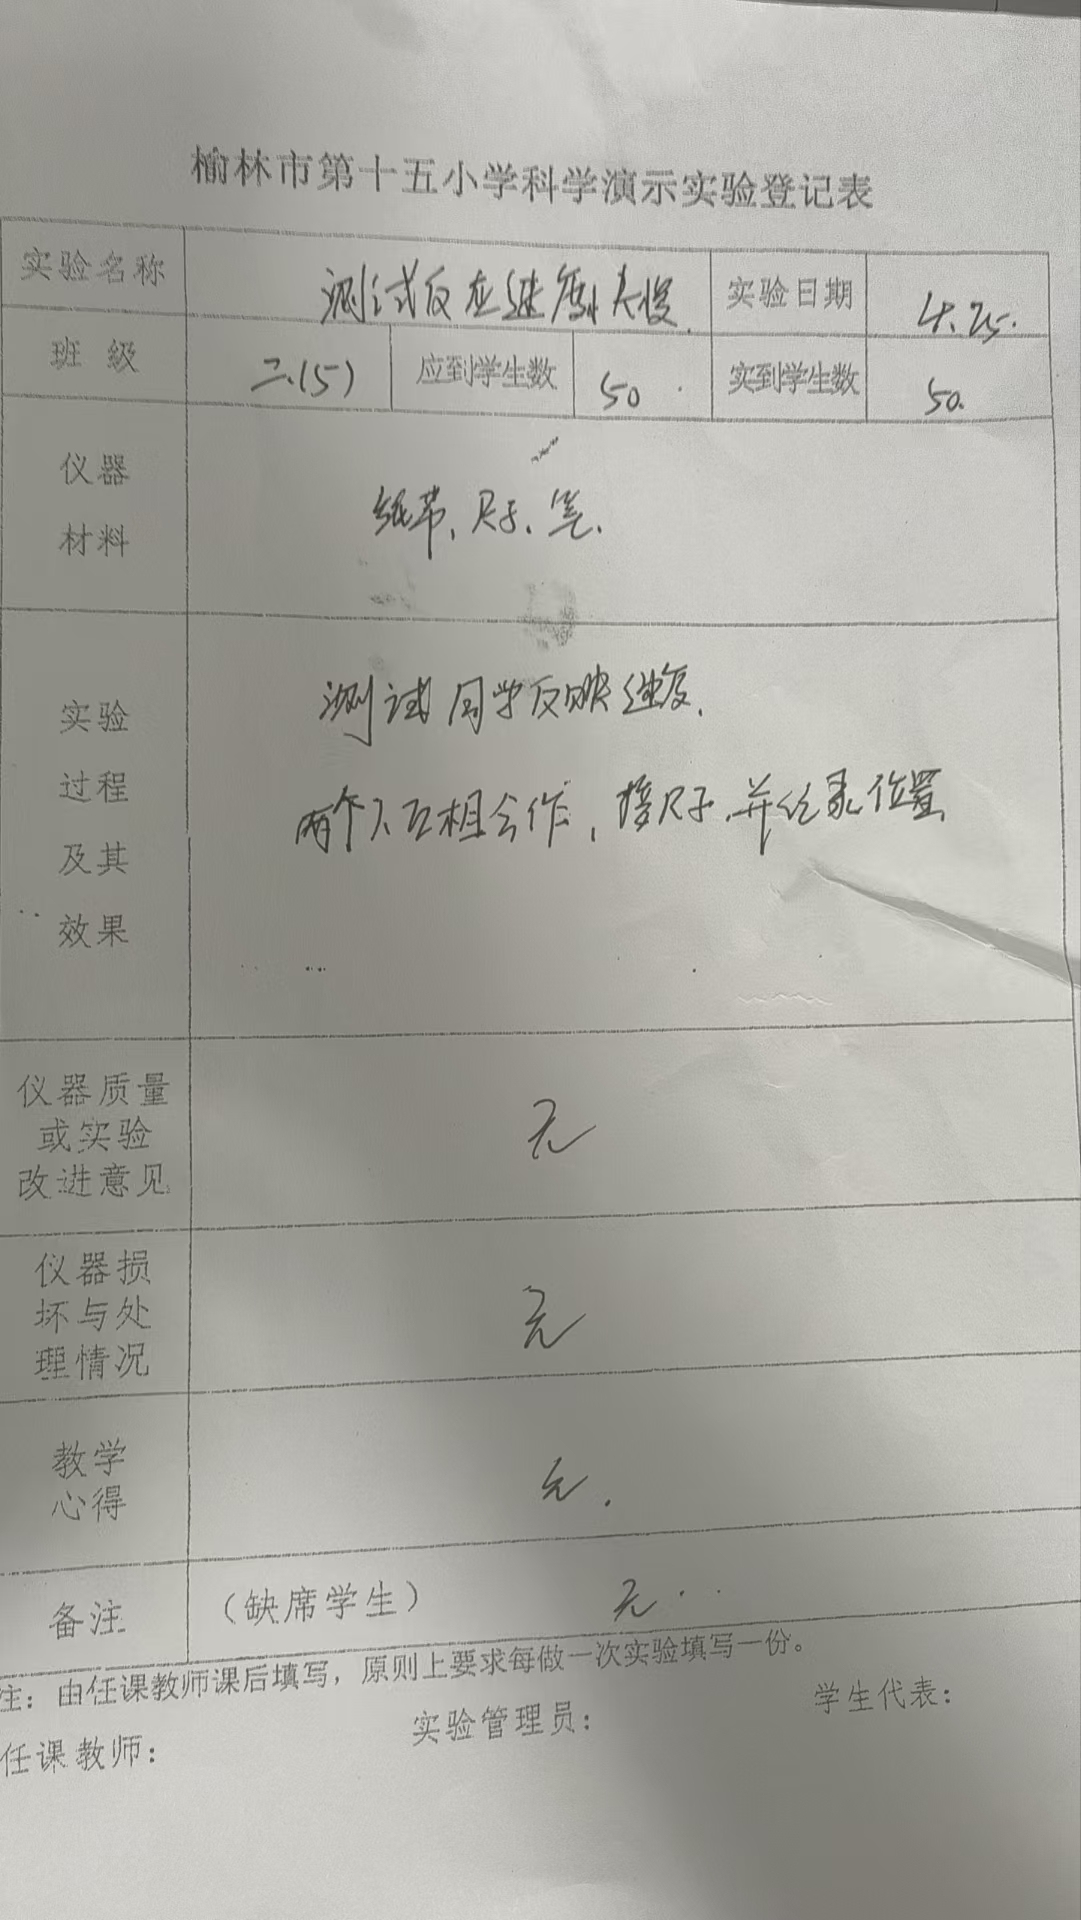 榆林市第十五小学科学演示实验登记表
实验名称 测试反应速度 实验日期 4.25.
班级 二.(5) 应到学生数 50 实到学生数 50.
仪器
材料
纸带、尺子、笔.
实验
过程
及其
效果
测试同学反映速度.
两个人互相合作,接尺子,并记录位置
仪器质量
或实验
改进意见
无
仪器损
坏与处
理情况
无
教学
心得
无.
备注 (缺席学生) 无
注:由任课教师课后填写,原则上要求每做一次实验填写一份。
任课教师: 实验管理员: 学生代表: